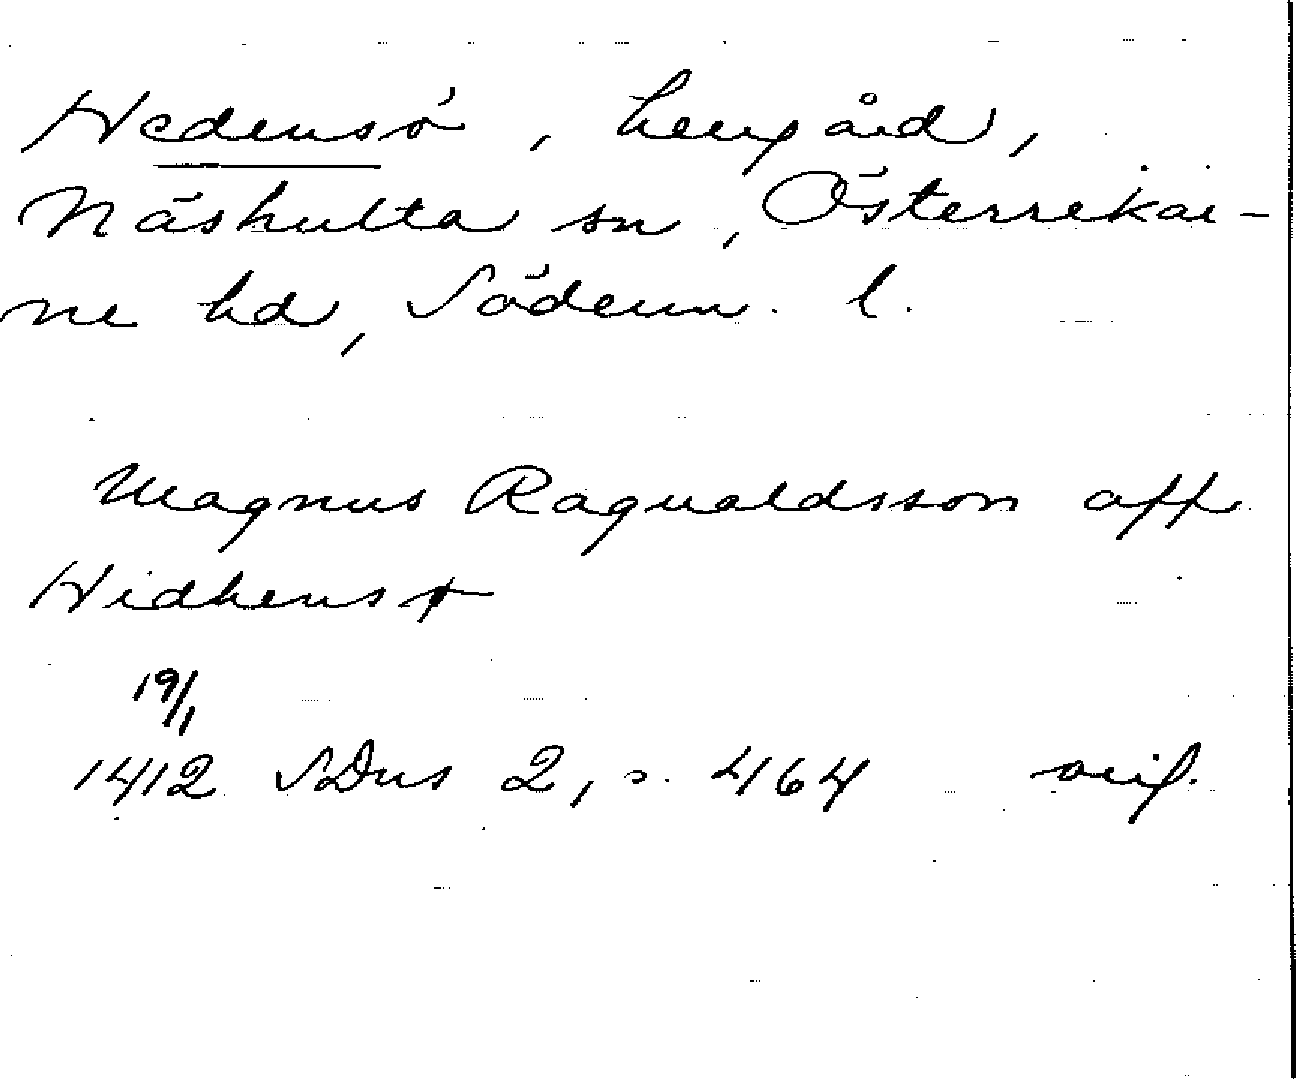 Hedensö, herrgård,
Näshulta sn, Österrekar-
ne hd, Söderm. l.
Magnus Ragualdsson aff
Hidhensø
19/1
1412 SDns 2, s. 464 orig.